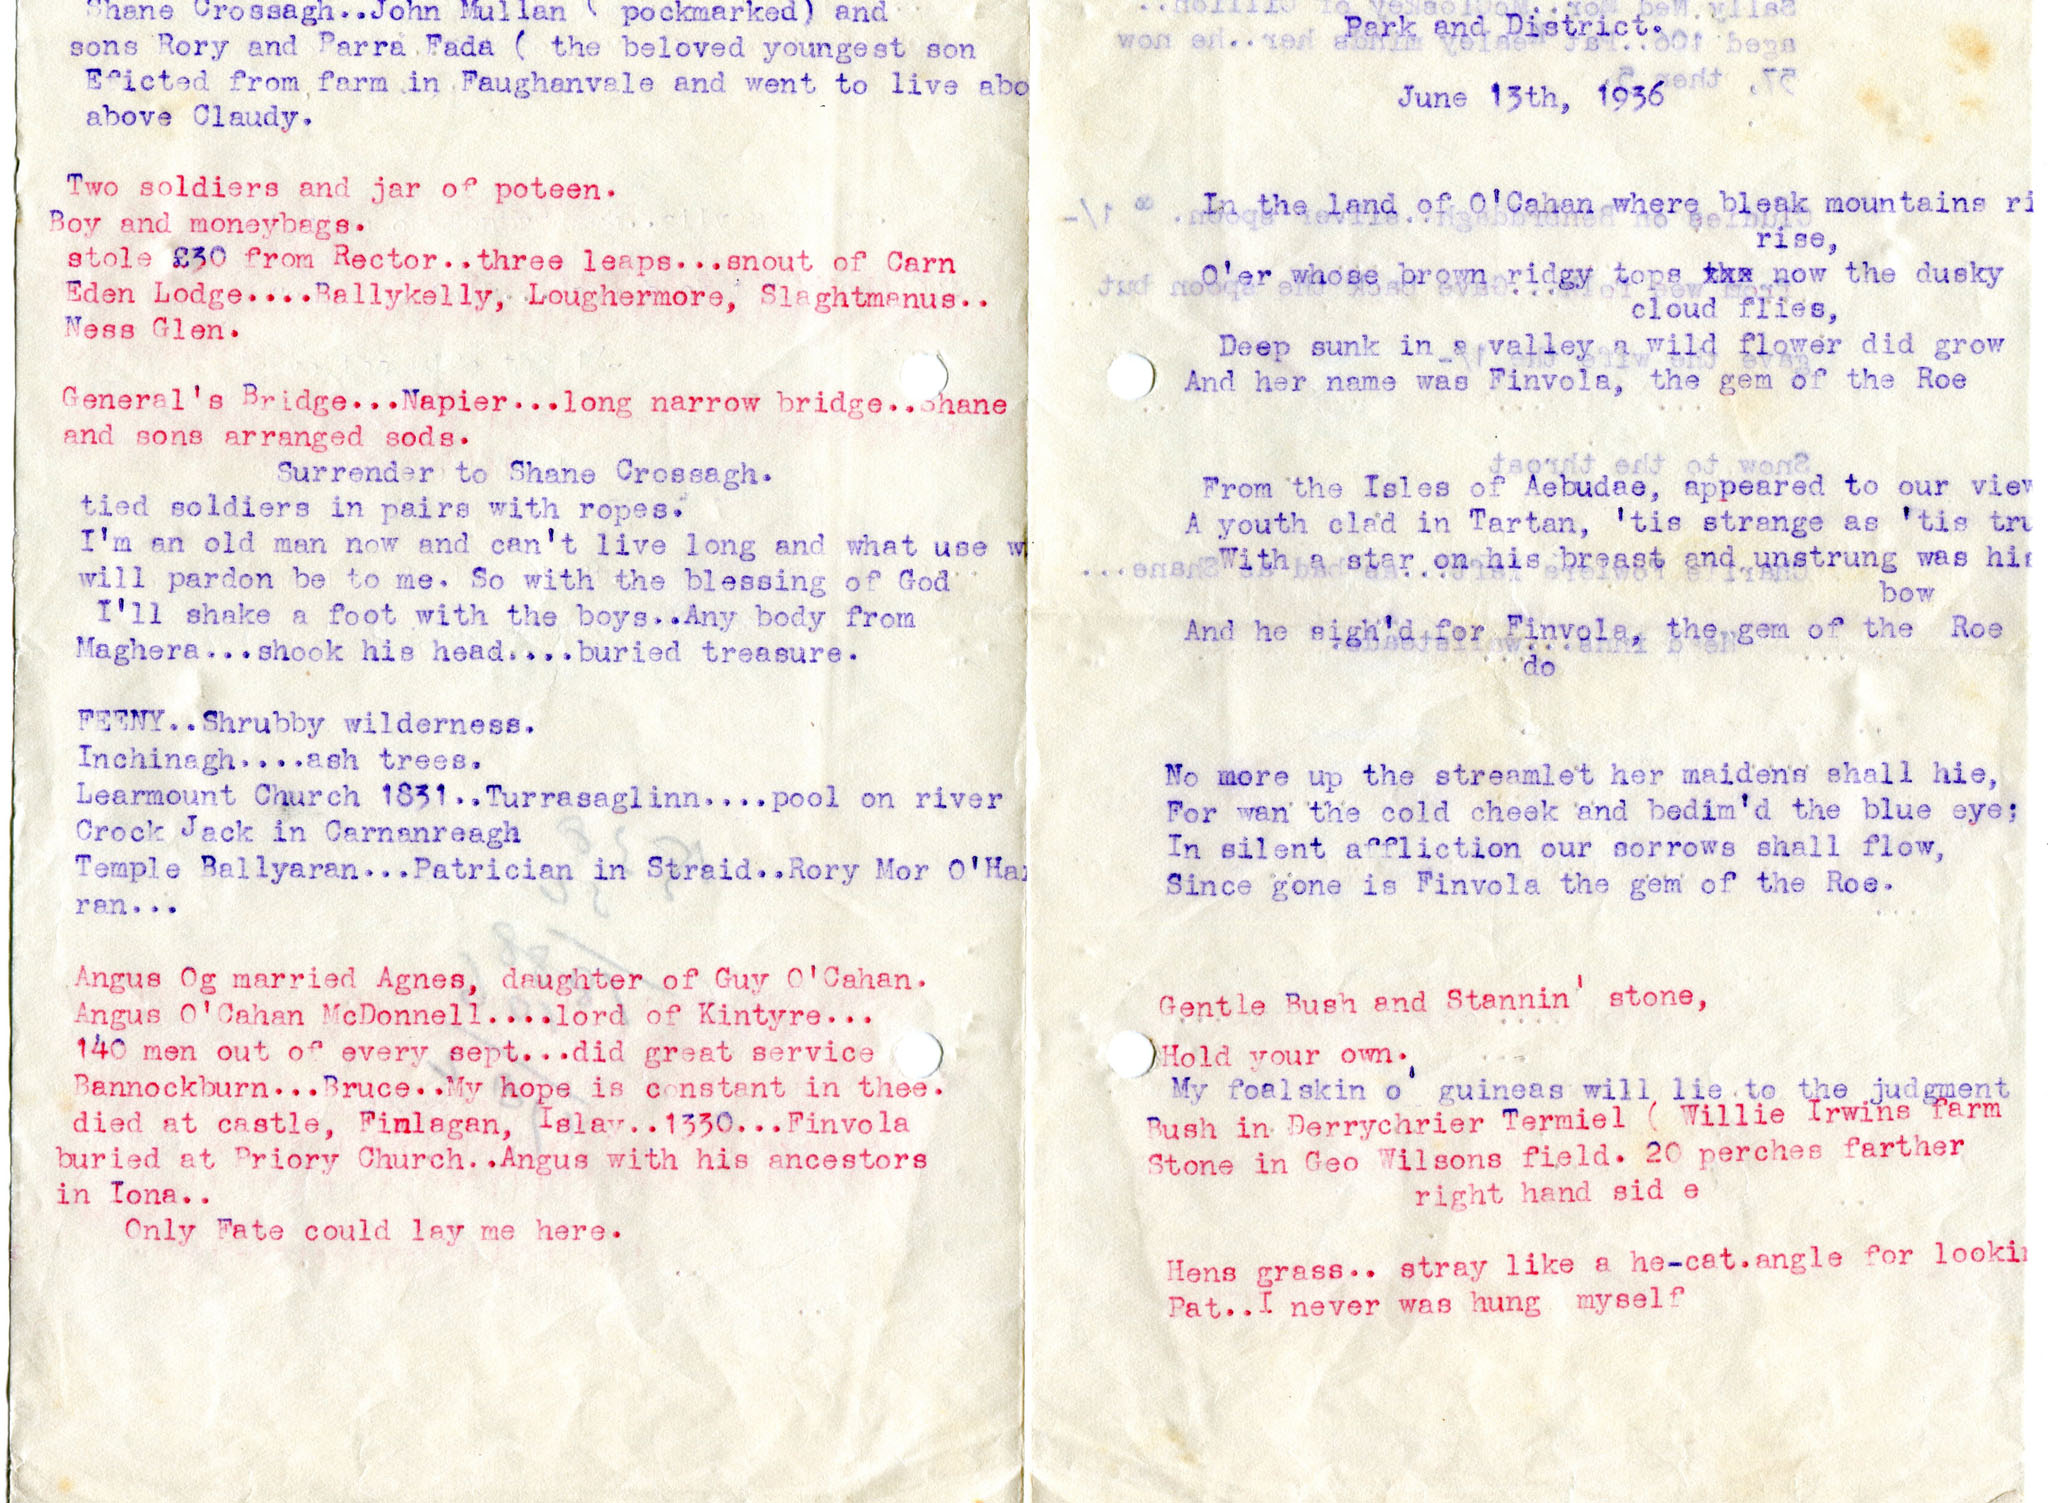 Shane Crossagh..John Mullan ( pockmarked) and
sons Rory and Parra Fada ( the beloved youngest son
Eficted from farm in Faughanvale and went to live abo
above Claudy.
Two soldiers and jar of poteen.
Boy and moneybags.
stole £30 from Rector..three leaps...snout of Carn
Eden Lodge....Ballykelly, Loughermore, Slaghtmanus..
Ness Glen.
General's Bridge...Napier...long narrow bridge..Shane
and sons arranged sods.
Surrender to Shane Crossagh.
tied soldiers in pairs with ropes.
I'm an old man now and can't live long and what use w
will pardon be to me. So with the blessing of God
I'll shake a foot with the boys..Any body from
Maghera...shook his head....buried treasure.
FEENY..Shrubby wilderness.
Inchinagh....ash trees.
Learmount Church 1831..Turrasaglinn....pool on river
Crock Jack in Carnanreagh
Temple Ballyaran...Patrician in Straid..Rory Mor O'Ha
ran...
Angus Og married Agnes, daughter of Guy O'Cahan.
Angus O'Cahan McDonnell....lord of Kintyre...
140 men out of every sept...did great service
Bannockburn...Bruce..My hope is constant in thee.
died at castle, Finlagan, Islay..1330...Finvola
buried at Priory Church..Angus with his ancestors
in Iona..
Only Fate could lay me here.
Park and District.
June 13th, 1936
In the land of O'Cahan where bleak mountains ri
rise,
O'er whose brown ridgy tops xxx now the dusky
cloud flies,
Deep sunk in a valley a wild flower did grow
And her name was Finvola, the gem of the Roe
From the Isles of Aebudae, appeared to our view
A youth clad in Tartan, 'tis strange as 'tis tru
With a star on his breast and unstrung was his
bow
And he sigh'd for Finvola, the gem of the Roe
do
No more up the streamlet her maidens shall hie,
For wan the cold cheek and bedim'd the blue eye;
In silent affliction our sorrows shall flow,
Since gone is Finvola the gem of the Roe.
Gentle Bush and Stannin' stone,
Hold your own.
My foalskin o' guineas will lie to the judgment
Bush in Derrychrier Termiel ( Willie Irwins farm
Stone in Geo Wilsons field. 20 perches farther
right hand sid e
Hens grass.. stray like a he-cat.angle for lookin
Pat..I never was hung myself